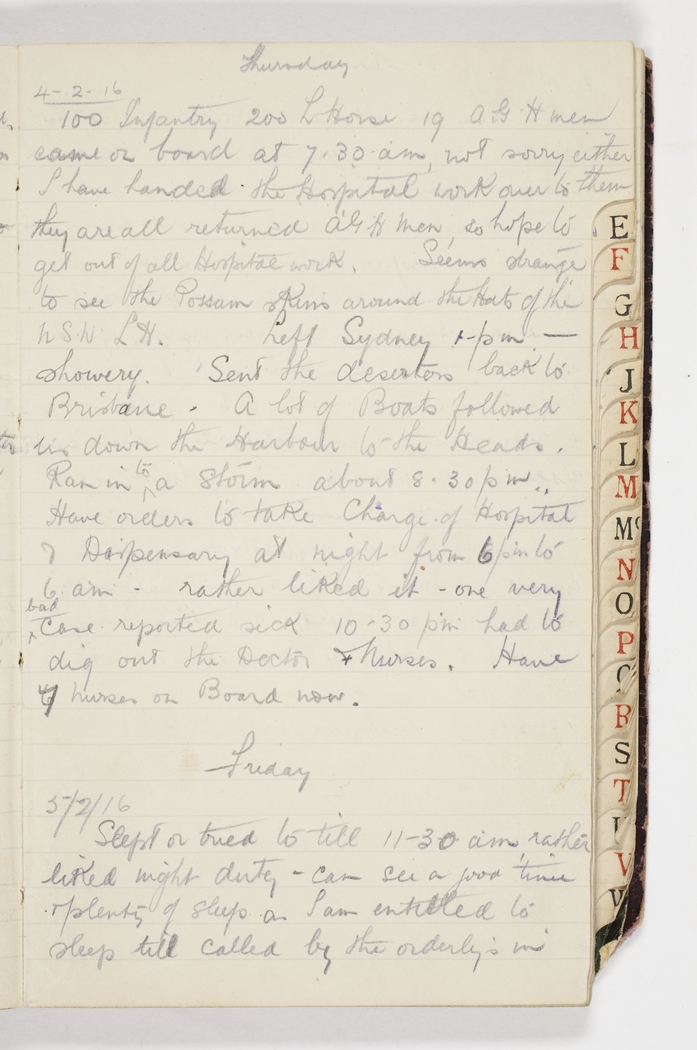 Thursday
4-2-16
100 Infantry 200 L Horse 19 AGH men
came on board at 7.30 am, not sorry either
I have handed the Hospital work over to them
they are all returned AGH men so hope to
get out of all Hospital work. Seems strange
to see the Possam skins around the Hats of the
NSW LH. Left Sydney 1-pm —
showery. Sent the deserters back to
Brisbane. A lot of Boats followed
us down the Harbour to the Heads.
Ran in to a storm about 8.30 pm.
Have orders to take Charge of Hospital
& Dispensary at night from 6 pm to
6 am - rather liked it - one very
bad
Case reported sick 10-30 pm had to
dig out the Doctor + Nurses. Have
7 nurses on Board now.
Friday
5/2/16
Slept or tried to till 11-30 am rather
liked night duty - can see a good time
+ plenty of sleep as I am entitled to
sleep till called by the orderly's in
E
F
G
H
J
K
L
M
Mc
N
O
P
R
S
T
V
W